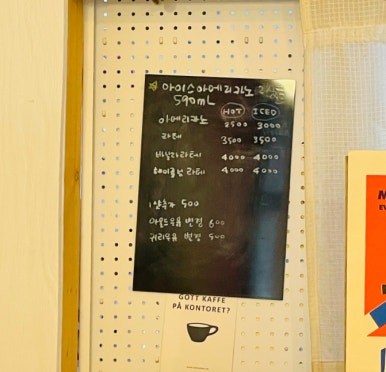 아이스 아메리카노
590mL
HOT ICED
아메리카노 2500 3000
라떼 3500 3500
바닐라라떼 4000 4000
헤이즐넛 라떼 4000 4000
1샷추가 500
아몬드우유 변경 600
귀리우유 변경 500
GOTT KAFFE
PÅ KONTORET?